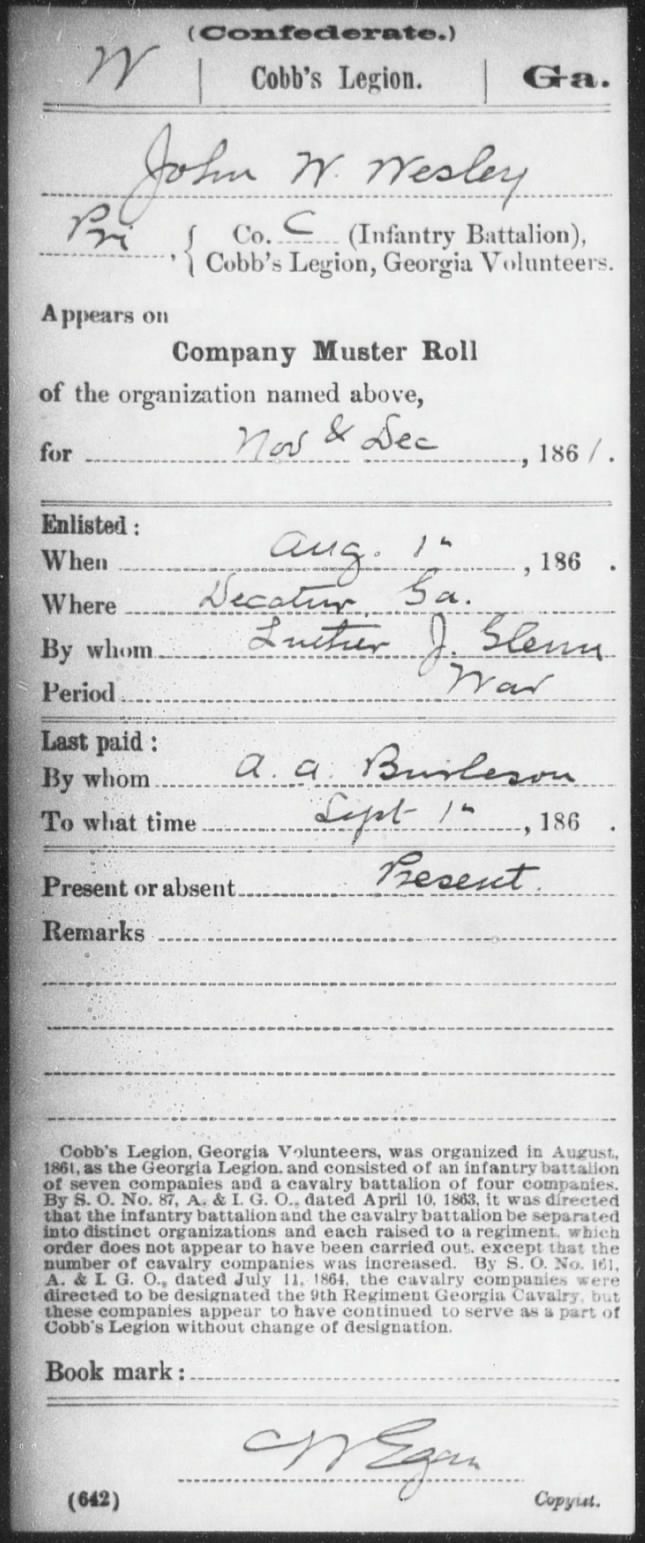 (Confederate.)
W | Cobb's Legion. | Ga.
John W. Wesley
Pri, { Co. C (Infantry Battalion),
Cobb's Legion, Georgia Volunteers.
Appears on
Company Muster Roll
of the organization named above,
for Nov & Dec, 1861.
Enlisted:
When Aug. 1", 186 .
Where Decatur, Ga.
By whom Luther J. Glenn
Period War
Last paid:
By whom A. A. Burleson
To what time Sept 1", 186 .
Present or absent Present.
Remarks
Cobb's Legion, Georgia Volunteers, was organized in August,
1861, as the Georgia Legion, and consisted of an infantry battalion
of seven companies and a cavalry battalion of four companies.
By S. O. No. 87, A. & I. G. O., dated April 10, 1863, it was directed
that the infantry battalion and the cavalry battalion be separated
into distinct organizations and each raised to a regiment, which
order does not appear to have been carried out, except that the
number of cavalry companies was increased. By S. O. No. 161,
A. & I. G. O., dated July 11, 1864, the cavalry companies were
directed to be designated the 9th Regiment Georgia Cavalry, but
these companies appear to have continued to serve as a part of
Cobb's Legion without change of designation.
Book mark:
C W Egan
(642) Copyist.